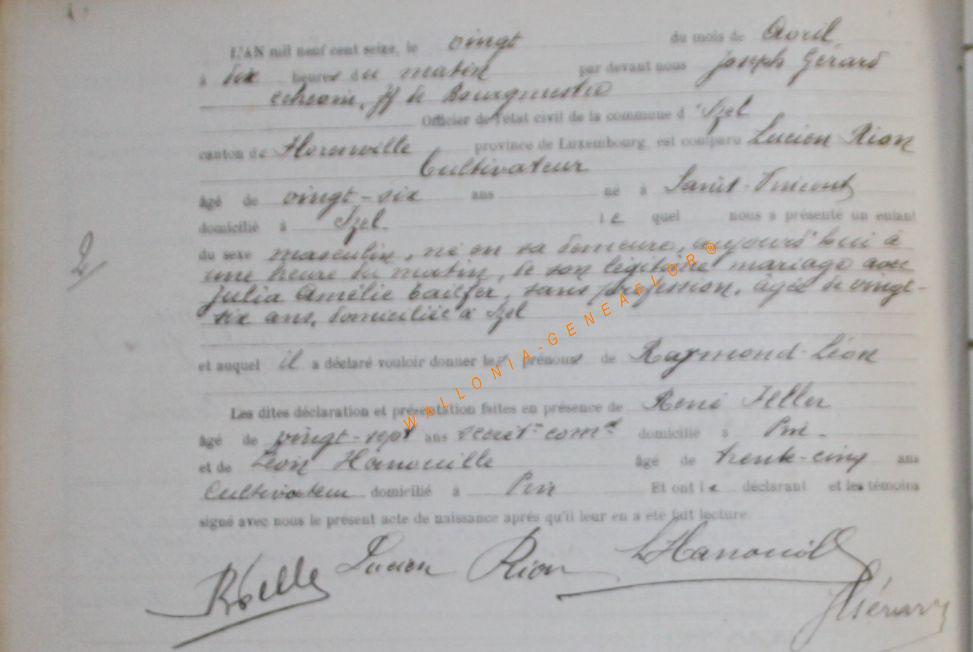 L'AN mil neuf cent seize, le vingt du mois de Avril
à six heures du matin par devant nous Joseph Gérard
échevin, ff de Bourgmestre
Officier de l'état civil de la commune d'Izel
canton de Florenville province de Luxembourg, est comparu Lucien Rion
Cultivateur
âgé de vingt-six ans né à Saint-Vincent
domicilié à Izel le quel nous a présenté un enfant
2/
du sexe masculin, né en sa demeure, aujourd'hui à
une heure du matin, de son légitime mariage avec
Julia Amélie Tailfer, sans profession, âgée de vingt-
six ans, domiciliée à Izel
et auquel il a déclaré vouloir donner les prénoms de Raymond-Léon
Les dites déclaration et présentation faites en présence de René Feller
âgé de vingt-sept ans secret.re com.al domicilié à Pin
et de Léon Hanouille âgé de trente-cinq ans
Cultivateur domicilié à Pin Et ont le déclarant et les témoins
signé avec nous le présent acte de naissance après qu'il leur en a été fait lecture.
Lucien Rion L Hanouille
JGérard
WALLONIA-GENEAFLOR®